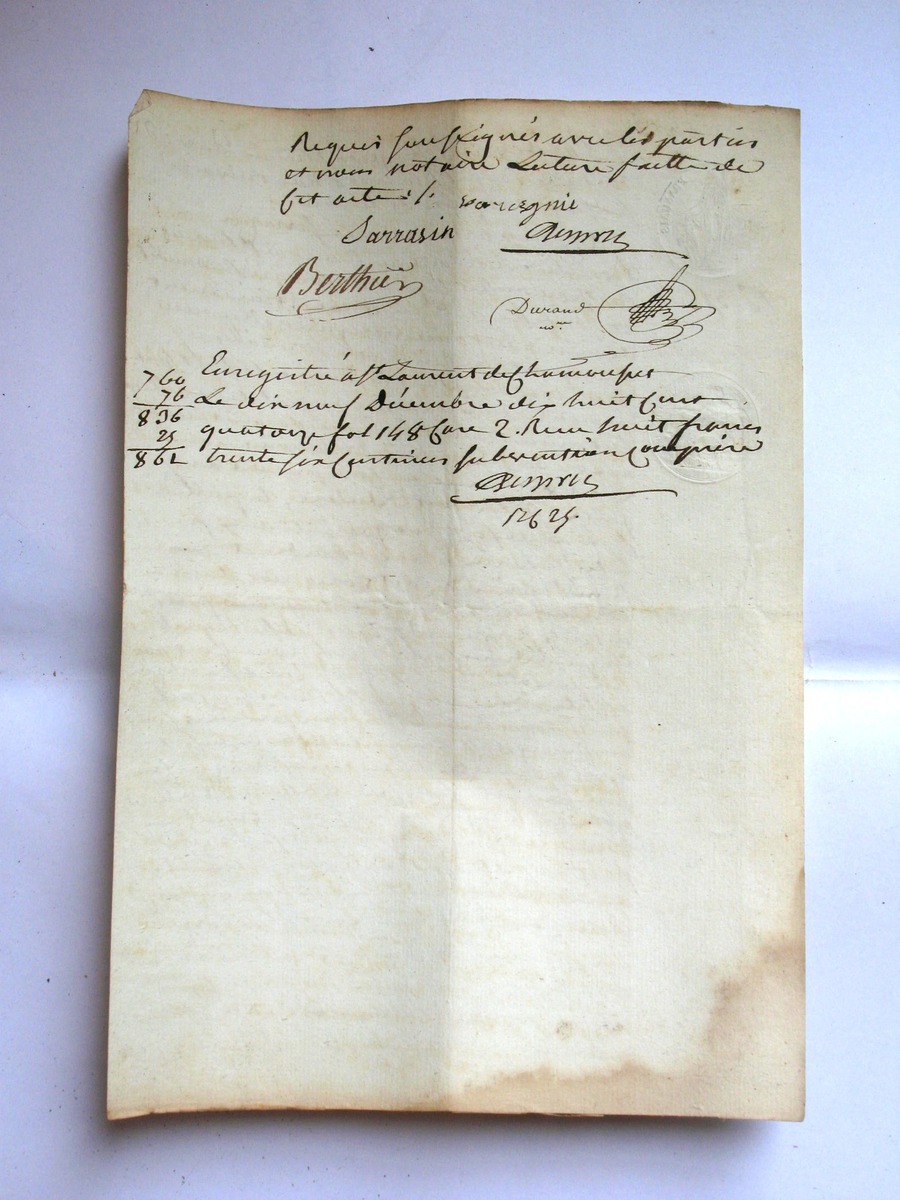 Requis soussignés avec les parties
et nous notaire Lecture faitte de
cet acte ./.
Sarrasin
Berthier
Durand
Enregistré a St Laurent de Chamousset
760
Le dix neuf Décembre dix huit Cent
76
836
quatorze fol 148 Case 2. Reçu huit francs
25
trente six Centimes subvention Comprise
861